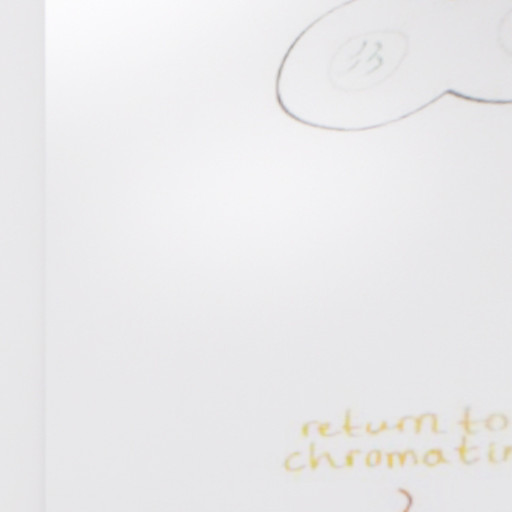 return to
chromatin